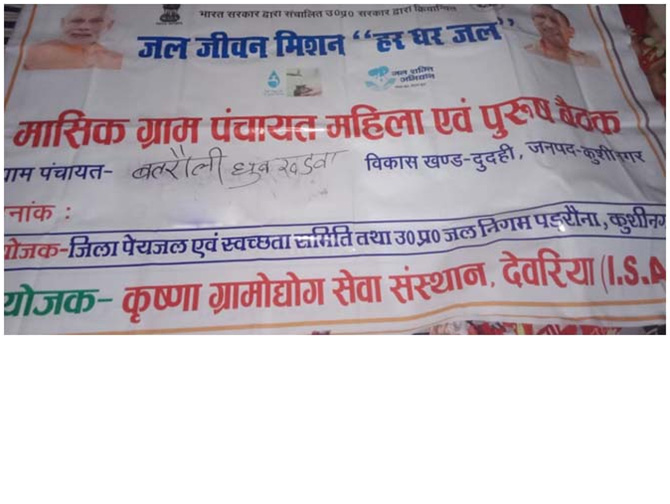 भारत सरकार द्वारा संचालित उ०प्र० सरकार द्वारा क्रियान्वित
जल जीवन मिशन "हर घर जल"
जल शक्ति अभियान
मासिक ग्राम पंचायत महिला एवं पुरूष बैठक
ग्राम पंचायत- बतरौली धुरखडवा विकास खण्ड-दुदही, जनपद-कुशीनगर
नांक :
योजक-जिला पेयजल एवं स्वच्छता समिति तथा उ०प्र० जल निगम पडरौना, कुशीनग
योजक- कृष्णा ग्रामोद्योग सेवा संस्थान, देवरिया (I.S.A